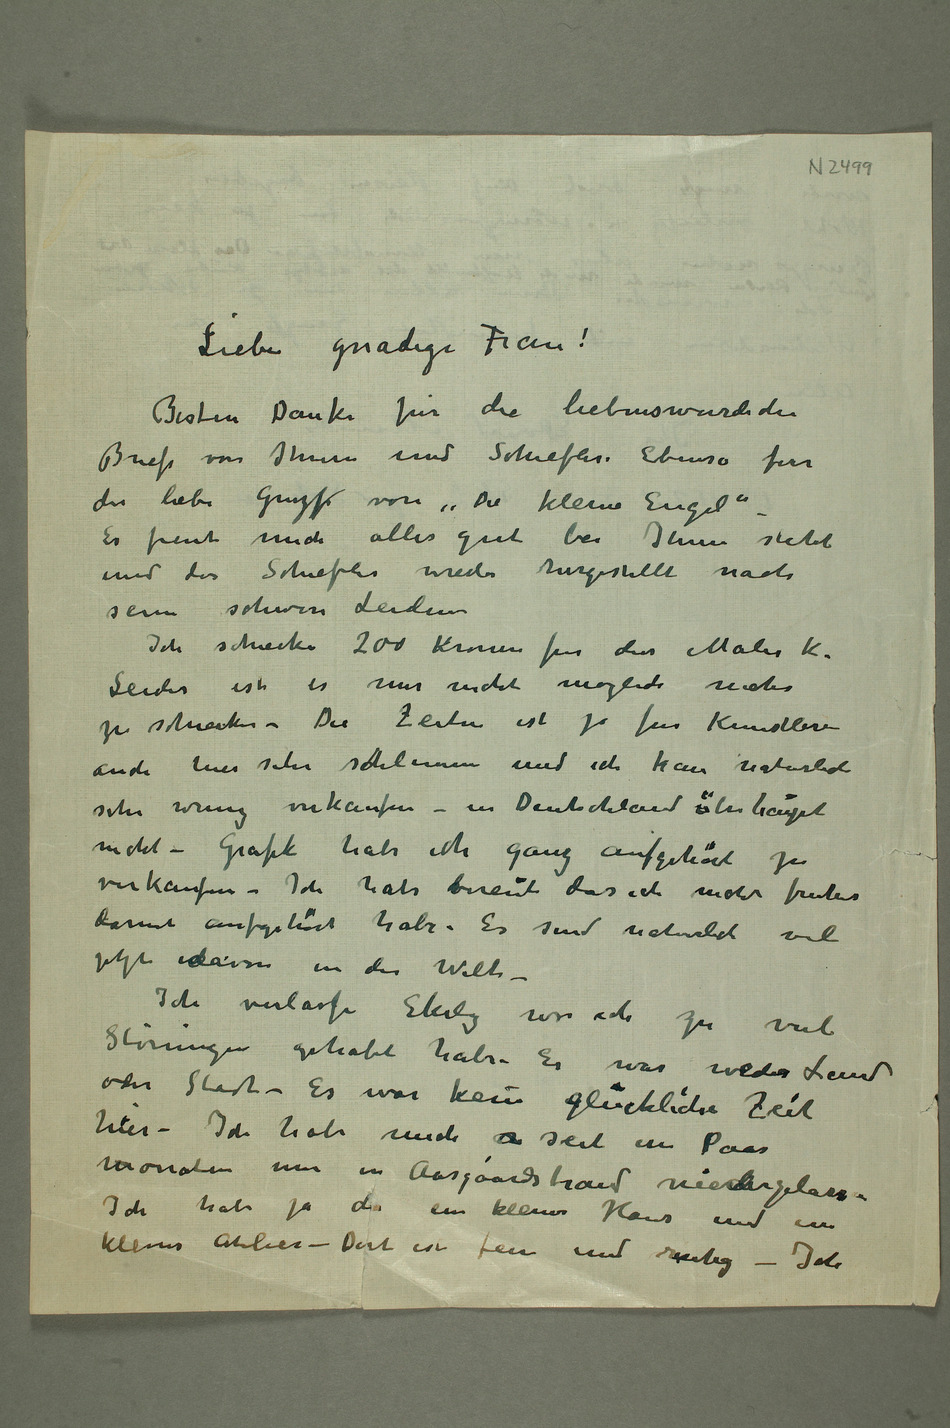 N 2499
Liebe gnädige Frau!
Besten Danke für die liebenswürdiche
Briefe von Ihnen und Schiefler. Ebenso fürr
die liebe Grusse von „Die kleine Engel“ –
Es freut mich alles gut bei Ihnen steht
und das Schiefler wieder hergestellt nach
seine schwere Leiden
Ich schicke 200 Kronen für der Maler K.
Leider ist es mir nicht möglich mehr
zu schicken – Die Zeiten ist ja für Kunstlere
auch hier sehr schlimm und ich kan naturlich
sehr wenig verkaufen – in Deutschland überhaupt
nicht – Grafik habe ich ganz aufgehört zu
verkaufen – Ich habe bereut das ich nicht früher
damit aufgehört habe. Es sind naturlich viel
jetzt davon in der Welt –
Ich verlasse Ekely wo ich zu viel
Störungen gehabt habe – Es war weder Land
oder Stadt – Es war kein glückliche Zeit
hier – Ich habe mich seit ein Paar
monaten nun in Aasgaardstrand niedergelass.
Ich habe ja da ein kleines Haus und ein
kleines Atelier – Dort ist fein und ruhig – Ich